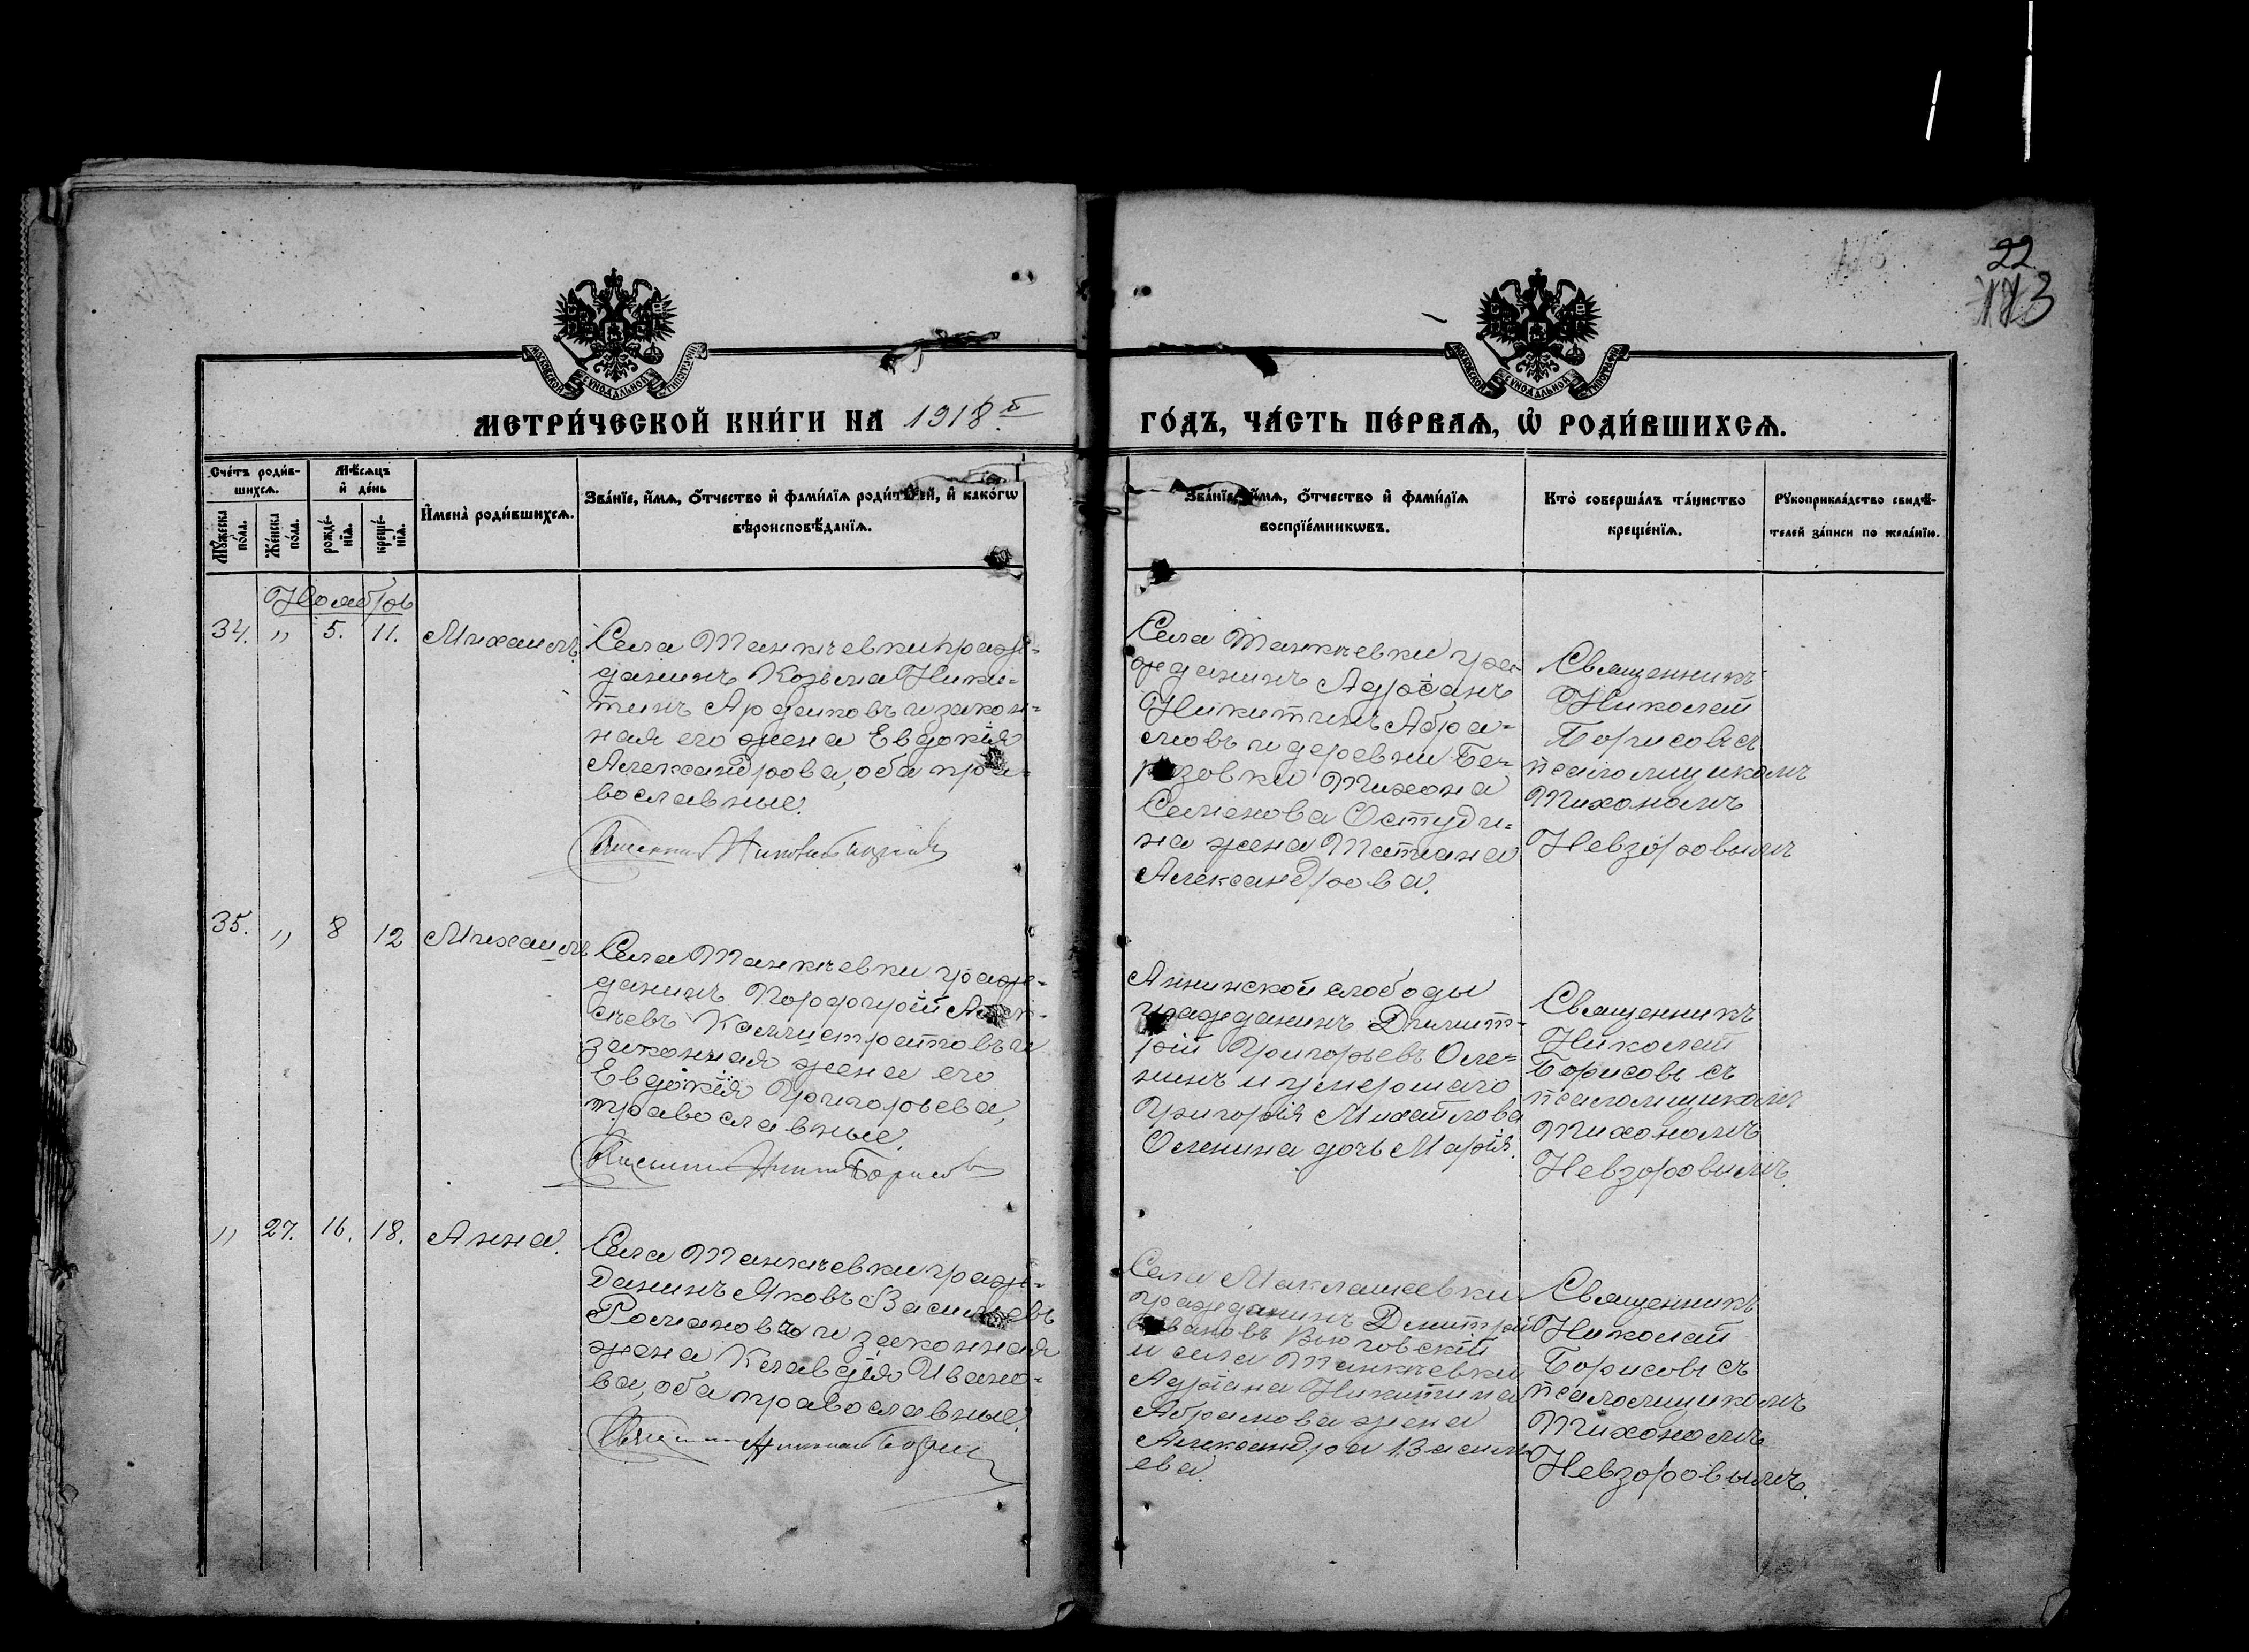 22
113
МОСКОВСКОЙ СѴНОДАЛЬНОЙ ТИПОГРАФІИ
МОСКОВСКОЙ СѴНОДАЛЬНОЙ ТИПОГРАФІИ
МЕТРИ́ЧЕСКОЙ КНИ́ГИ НА 1918 й
ГО́ДЪ, ЧА́СТЬ ПЕ́РВАѦ, Ѡ҆ РОДИ́ВШИХСѦ.
Сче́тъ роди́в-
шихсѧ.
Мꙋ́жеска по́ла.
Же́нска по́ла.
Мѣ́сѧцъ
и҆ де́нь
рожде́-
нїѧ.
креще́-
нїѧ.
И҆мена̀ роди́вшихсѧ.
Зва́нїе, и҆́мѧ, ѻ҆́тчество и҆ фами́лїѧ роди́телей, и҆ како́гѡ
вѣроисповѣ́данїѧ.
Зва́нїе, и҆́мѧ, ѻ҆́тчество и҆ фами́лїѧ
воспрїе́мникѡвъ.
Кто̀ соверша́лъ та́инство
креще́нїѧ.
Рꙋкоприкла́дство свидѣ́-
телей за́писи по жела́нїю.
Ноябрь
34. „ 5. 11. Михаилъ.
Села Танкѣевки граж-
данинъ Козьма Ники-
тинъ Ардаковъ и закон-
ная его жена Евдокія
Александрова, оба пра-
вославные.
Священник Николай Борисовъ
Села Танкѣевки гра-
жданинъ Адріанъ
Никитинъ Абра-
мовъ и деревни Бе-
резовки Тихона
Семенова Остуди-
на жена Татиана
Александрова.
Священникъ
Николай
Борисовъ съ
псаломщикомъ
Тихономъ
Невзоровымъ
35. „ 8 12 Михаилъ
Села Танкѣевки граж-
данинъ Порфирій Алек-
сѣевъ Каллистратовъ и
законная жена его
Евдокія Григорьева,
православные.
Священник Николай Борисовъ
Аннинской слободы
гражданинъ Димит-
рій Григорьевъ Оле-
нинъ и умершаго
Григорія Михайлова
Оленина дочь Марія.
Священникъ
Николай
Борисовъ съ
псаломщикомъ
Тихономъ
Невзоровымъ.
„ 27. 16. 18. Анна.
Села Танкѣевки граж-
данинъ Яковъ Васильевъ
Романовъ и законная
жена Клавдія Ивано-
ва, оба православные.
Священник Николай Борисовъ
Села Маклашеевки
гражданинъ Димитрій
Ивановъ
и села Танкѣевки
Адріана Никитина
Абрамова жена
Александра Василь-
ева.
Священникъ
Николай
Борисовъ съ
псаломщикомъ
Тихономъ
Невзоровымъ.